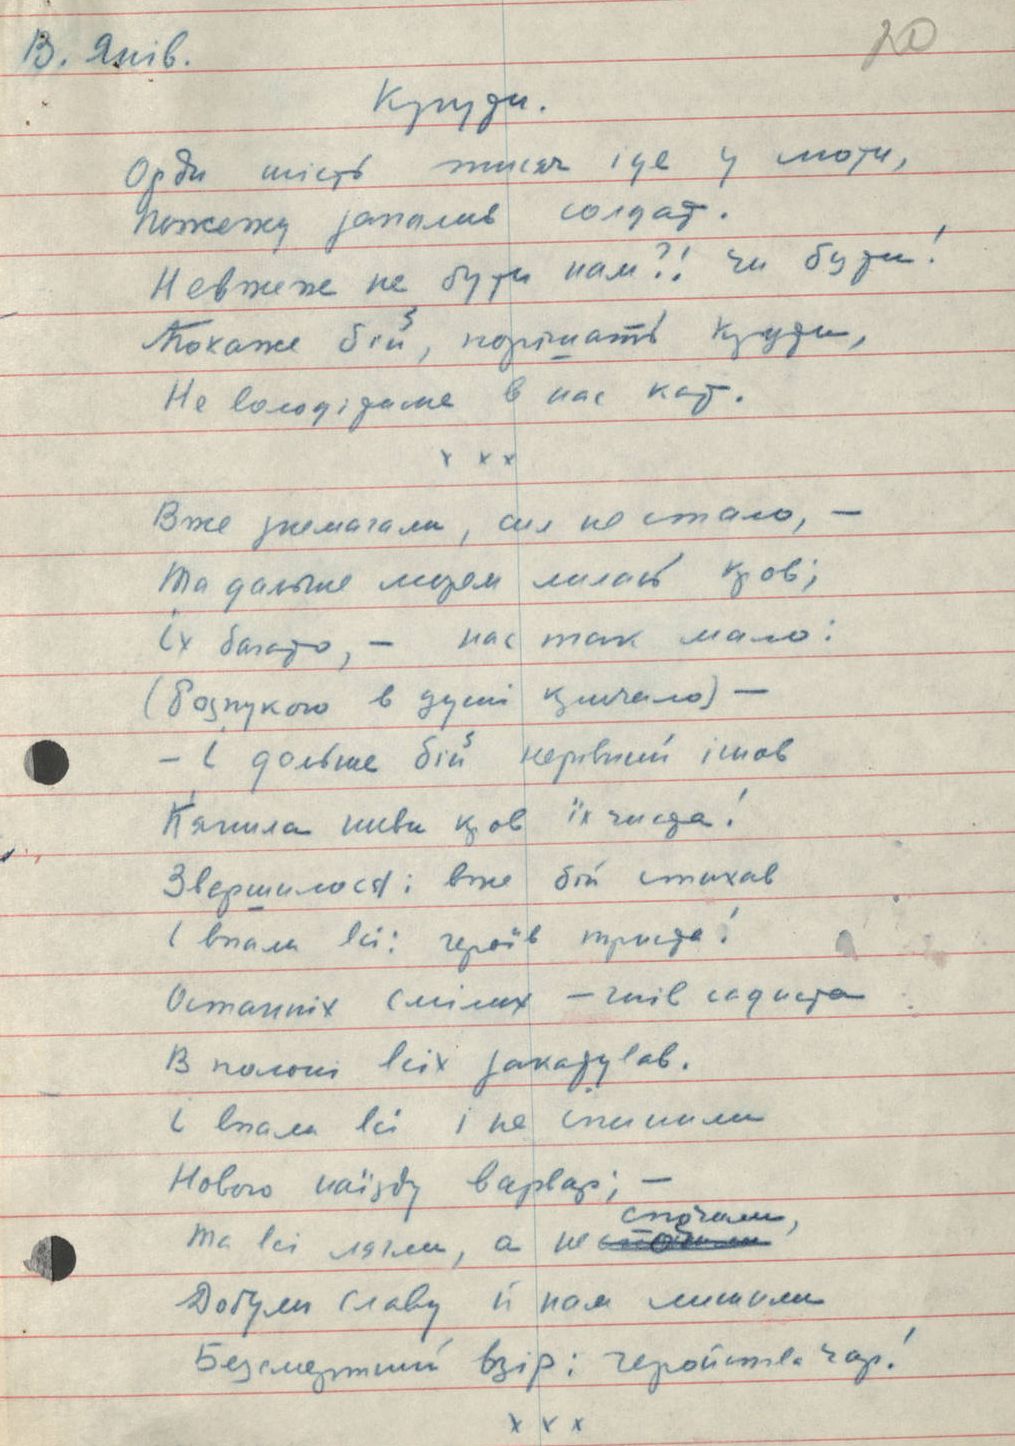 В. Янів.
20
Крути.
Орди шість тисяч іде у люти,
Пожежу запалив солдат.
Невжеж не бути нам?! чи бути!
Покаже бій, порішать Крути,
Не володітиме в нас кат.
х х х
Вже знемагали, сил не стало, —
Та дальше морем лилась кров;
Їх багато, — нас так мало:
(Розпукою в душі кричало) —
— І дальше бій нерівний ішов
Кячила ниви кров їх чиста!
Звершилося: вже бій стихав
І впали всі: героїв триста!
Останніх смілих — гнів садиста
В полоні всіх закатував.
І впали всі і не спинили
Нового наїзду варвар; —
Та всі лягли, а не спочили,
Добули славу й нам лишили
Безсмертний взір: геройства чар!
х х х